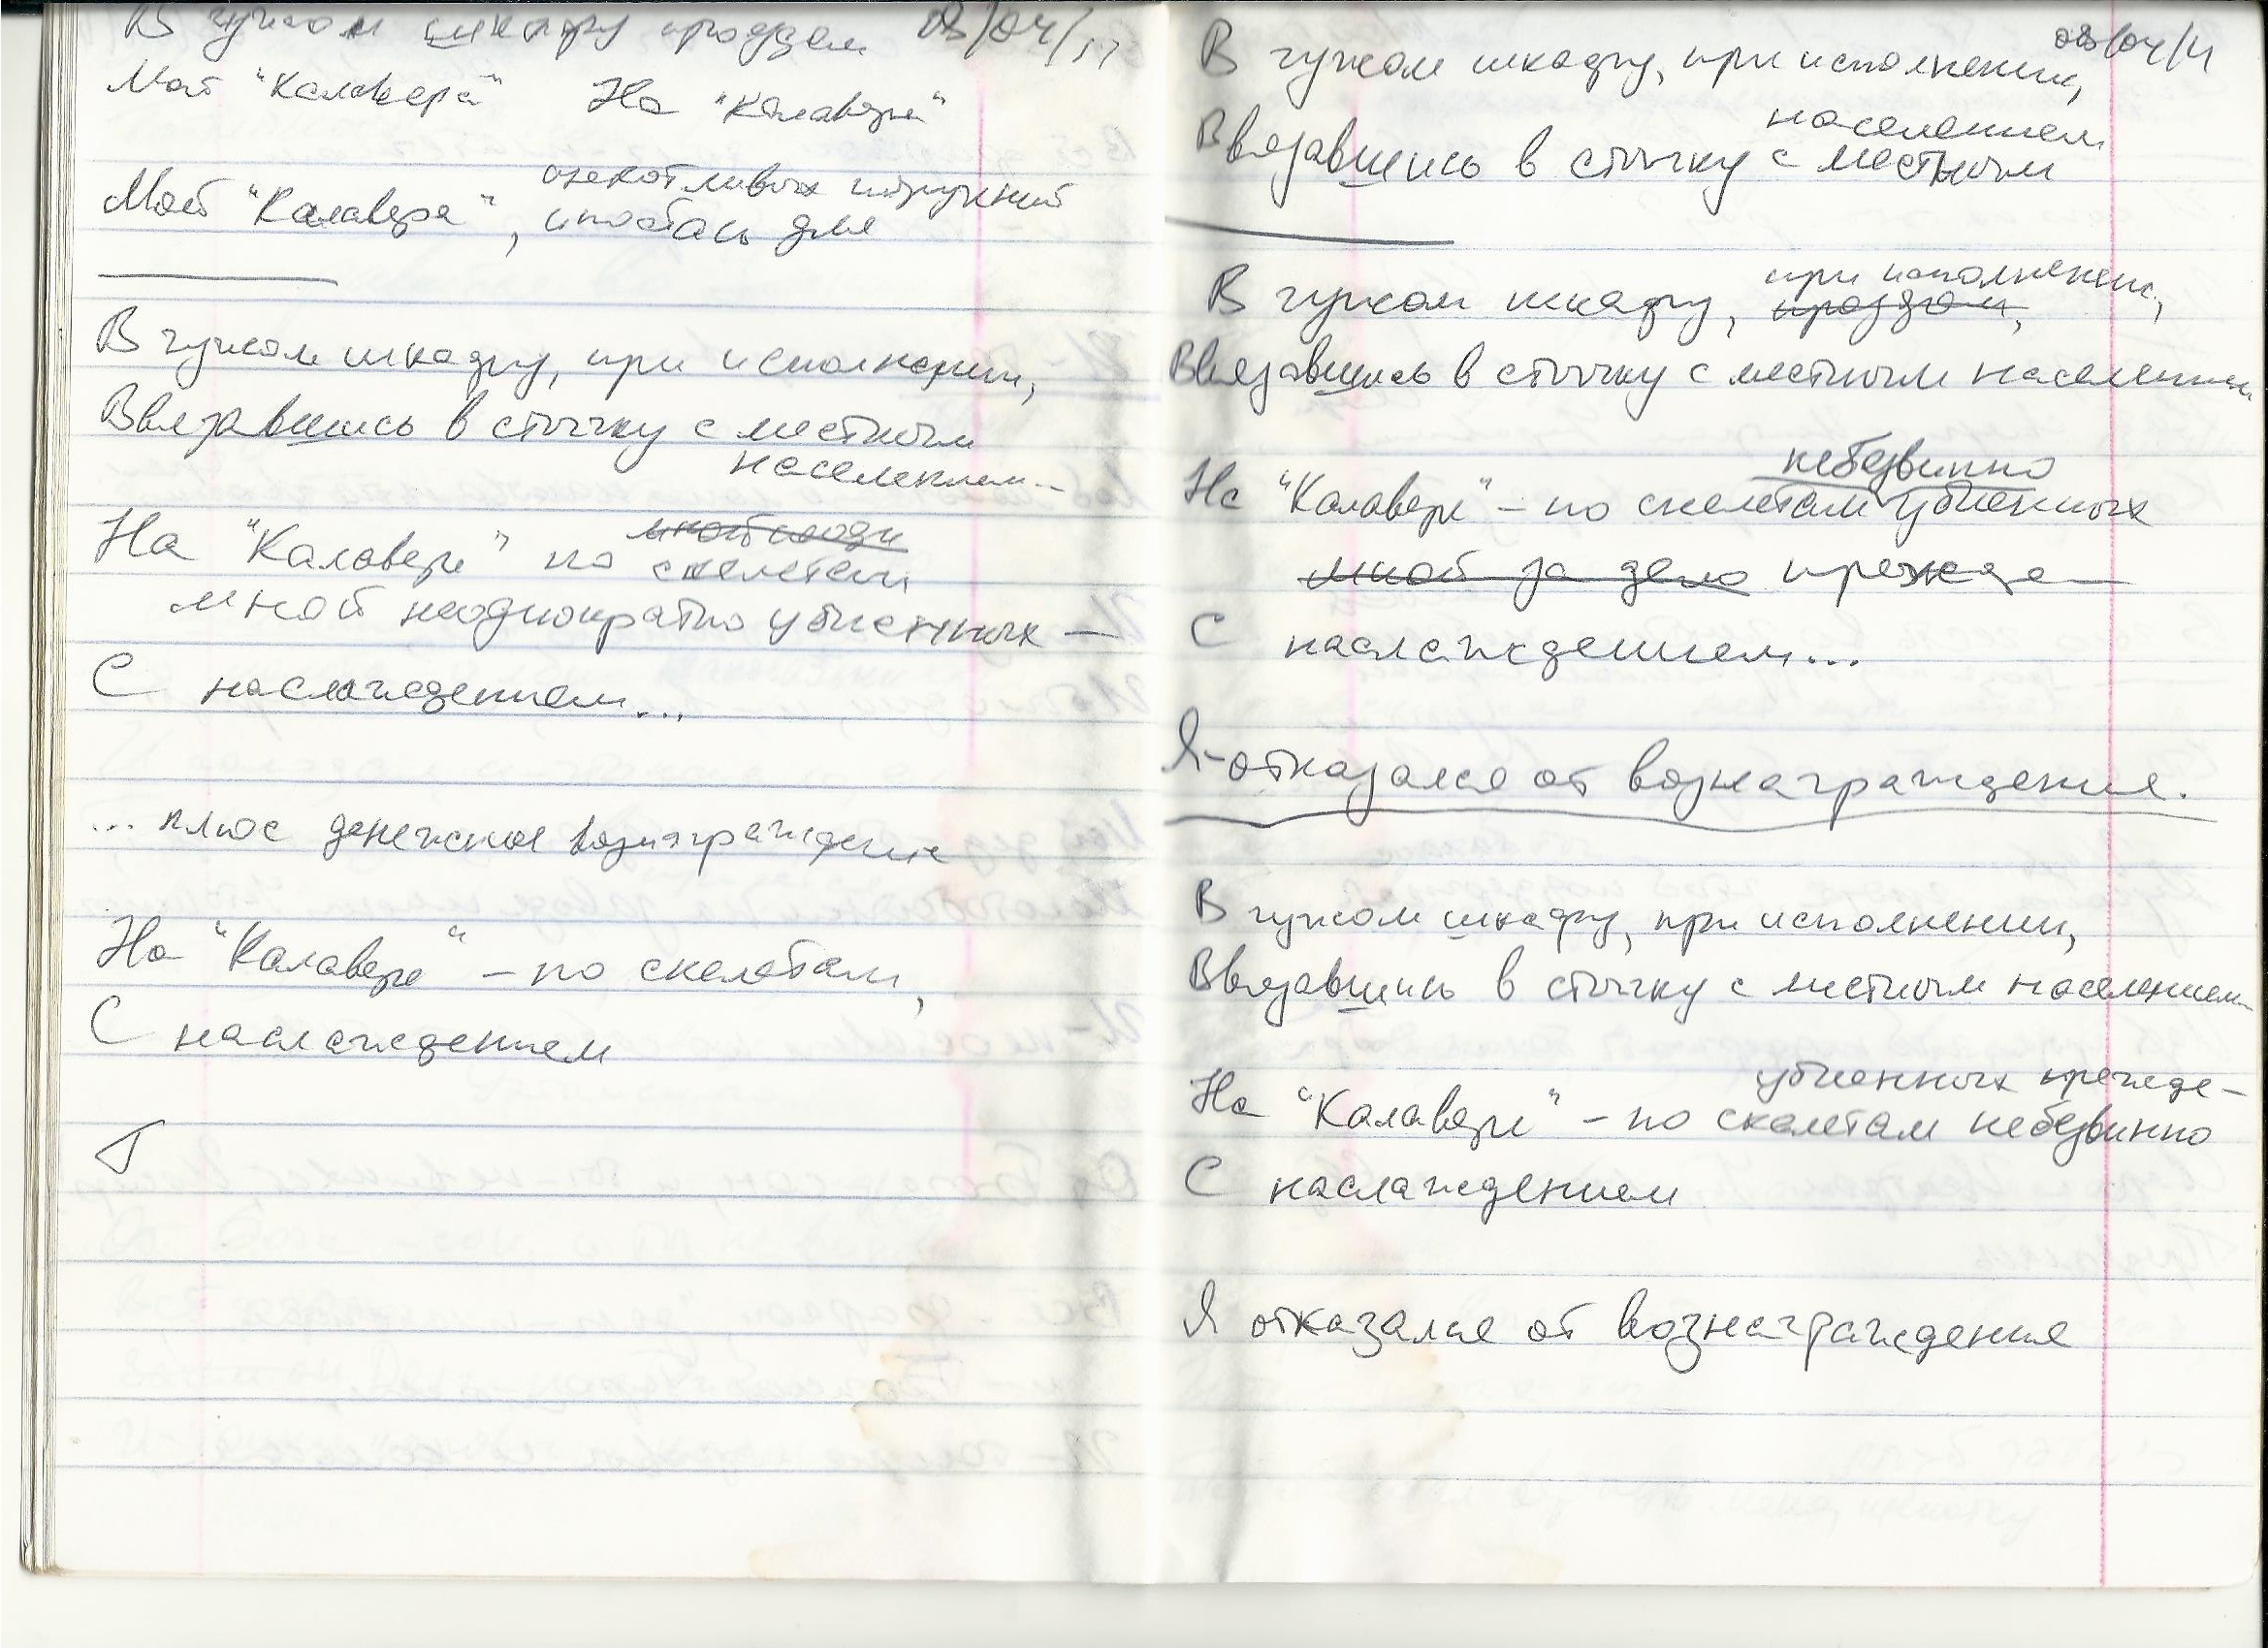 В чужом шкафу проездом 08/04/11
Мой "Калавера" На "Калавере"
щекотливых поручений
Мой "Калавера", ипостась для
В чужом шкафу, при исполнении,
Ввязавшись в стычку с местным
населением...
На "Калавере" по скелетам
мной неоднократно убиенных —
С наслаждением...
... плюс денежное вознаграждение
На "Калавере" – по скелетам,
С наслаждением
08/04/11
В чужом шкафу, при исполнении,
населением
Ввязавшись в стычку с местным
при исполнении,
В чужом шкафу, проездом,
Ввязавшись в стычку с местным населением
небезвинно
На "Калавере" – по скелетам убиенных
мной за дело прежде —
С наслаждением...
Я-отказался от вознаграждения.
В чужом шкафу, при исполнении,
Ввязавшись в стычку с местным населением
убиенных прежде –
На "Калавере" – по скелетам небезвинно
С наслаждением
Я отказался от вознаграждения